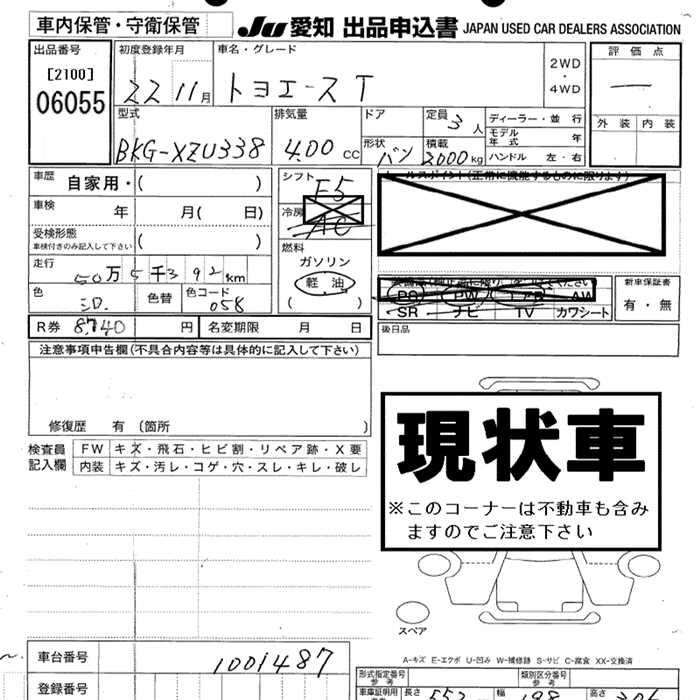 車内保管・守衛保管
JU 愛知 出品申込書 JAPAN USED CAR DEALERS ASSOCIATION
出品番号
[2100]
06055
初度登録年月
22 11月
車名・グレード
トヨエースT
2WD
・
4WD
評価点
—
外装 内装
型式
BKG-XZU338
排気量
4.00 cc
ドア
形状
バン
定員
3人
積載
2000kg
ディーラー・並行
モデル年式 年
ハンドル 左・右
車歴
自家用・( )
車検
年 月( 日)
受検形態
車検付きのみ記入して下さい
( )
走行
50万5千392km
色
色替
色コード
058
シフト
F5
冷房
AC
燃料
ガソリン
軽油
( )
R券 8,740 円
名変期限 月 日
PS PW エアB AW
SR ナビ TV カワシート
新車保証書
有・無
後日品
注意事項申告欄(不具合内容等は具体的に記入して下さい)
修復歴 有(箇所 )
検査員
記入欄
FW キズ・飛石・ヒビ割・リペア跡・X要
内装 キズ・汚レ・コゲ・穴・スレ・キレ・破レ
現状車
※このコーナーは不動車も含み
ますのでご注意下さい
スペア
A-キズ E-エクボ U-凹み W-補修跡 S-サビ C-腐食 XX-交換済
車台番号
1001487
登録番号
型式指定番号
参考
類別区分番号
参考
車庫証明用
長さ
552
幅
198
高さ
306